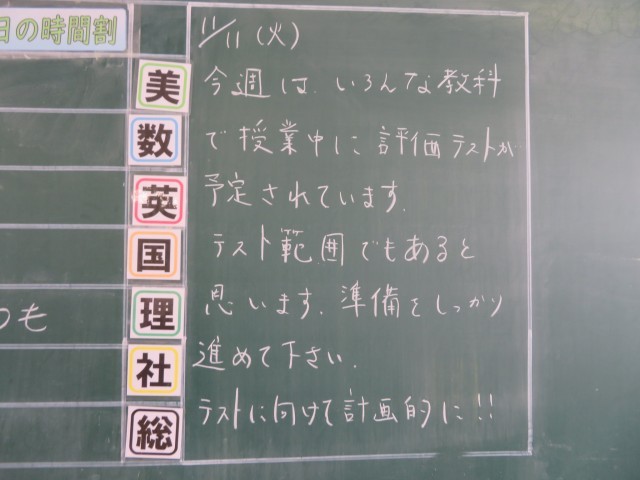 日の時間割
美
数
英
国
理
社
総
つも
11/11 (火)
今週は、いろんな教科
で授業中に評価テストが
予定されています。
テスト範囲でもあると
思います。準備をしっかり
進めて下さい。
テストに向けて計画的に!!